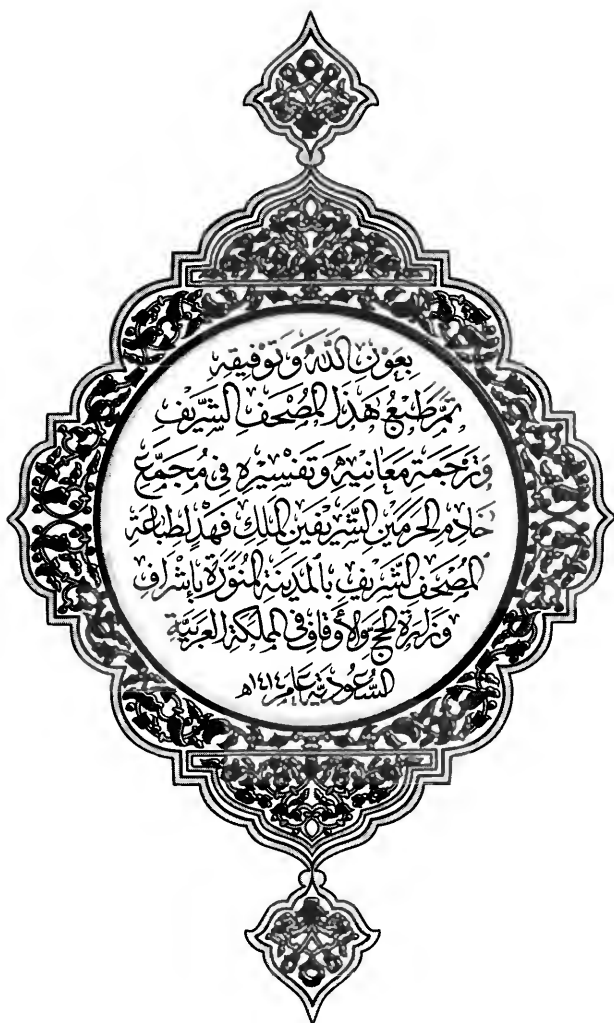 بِعَوْنِ اللَّهِ وَتَوْفِيقِهِ
تَمَّ طَبْعُ هَذَا الْمُصْحَفِ الشَّرِيْفِ
وَتَرْجَمَةِ مَعَانِيْهِ وَتَفْسِيْرِهِ فِي مُجَمَّعِ
خَادِمِ الْحَرَمَيْنِ الشَّرِيْفَيْنِ الْمَلِكِ فَهْدٍ لِطِبَاعَةِ
الْمُصْحَفِ الشَّرِيْفِ بِالْمَدِيْنَةِ الْمُنَوَّرَةِ بِإِشْرَافِ
وِزَارَةِ الْحَجِّ وَالْأَوْقَافِ فِي الْمَمْلَكَةِ الْعَرَبِيَّةِ
السُّعُوْدِيَّةِ عَامَ ١٤١٤هـ